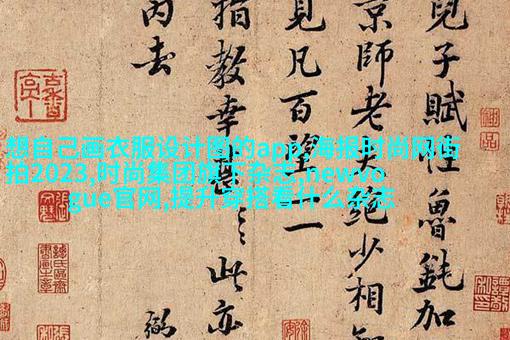 想自己画衣服设计图的app,海报时尚网街
拍2023,时尚集团旗下杂志,newvo
gue官网,提升穿搭看什么杂志
兒子賦性魯鈍加
京師老夫絕少相知
見凡百望一一
指教幸甚〻此亦